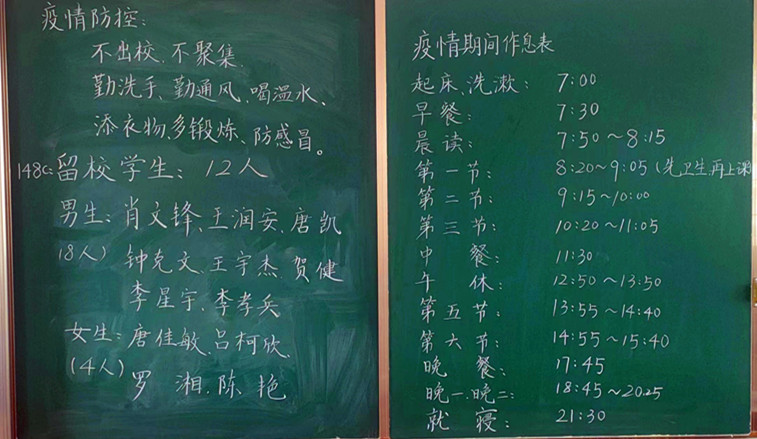 疫情防控:
不出校、不聚集、
勤洗手、勤通风、喝温水、
添衣物、多锻炼、防感冒。
148C:留校学生:12人
男生:肖文锋、王润安、唐凯
(8人) 钟克文、王宇杰、贺健
李星宇、李孝兵
女生:唐佳敏、吕柯欣、
(4人) 罗湘、陈艳
疫情期间作息表
起床、洗漱: 7:00
早餐: 7:30
晨读: 7:50~8:15
第一节: 8:20~9:05(先卫生,再上课)
第二节: 9:15~10:00
第三节: 10:20~11:05
中餐: 11:30
午休: 12:50~13:50
第五节: 13:55~14:40
第六节: 14:55~15:40
晚餐: 17:45
晚一、晚二: 18:45~20:25
就寝: 21:30